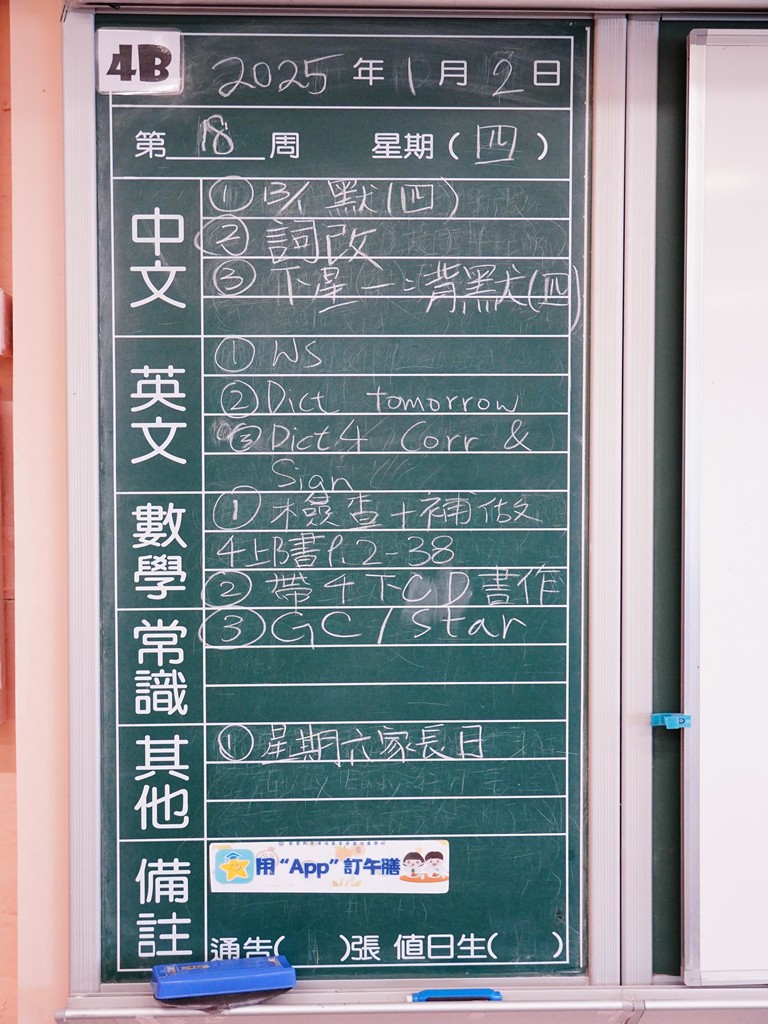 4B
2025 年 1 月 2 日
第 18 周 星期 ( 四 )
中文
① 13/1 默(四)
② 詞改
③ 下星一:背默(四)
英文
① WS
② Dict tomorrow
③ Dict 4 Corr &
Sign
數學
① 檢查+補做
4上B書P.2-38
② 帶4下CD書作
常識
③ GC / Star
其他
① 星期六家長日
備註
用“App”訂午膳
通告( )張 值日生( )